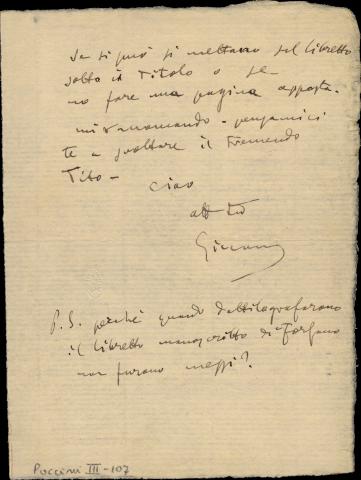 Se si può si mettano sul libretto
sotto il titolo o se
no fare una pagina apposta.
mi raccomando - pensamici
te a scoltare il tremendo
Tito -
ciao
aff tuo
Giacomo
P.S. perchè quando dattilografarono
il libretto manoscritto di Forzano
non furono messi?
Puccini III - 107